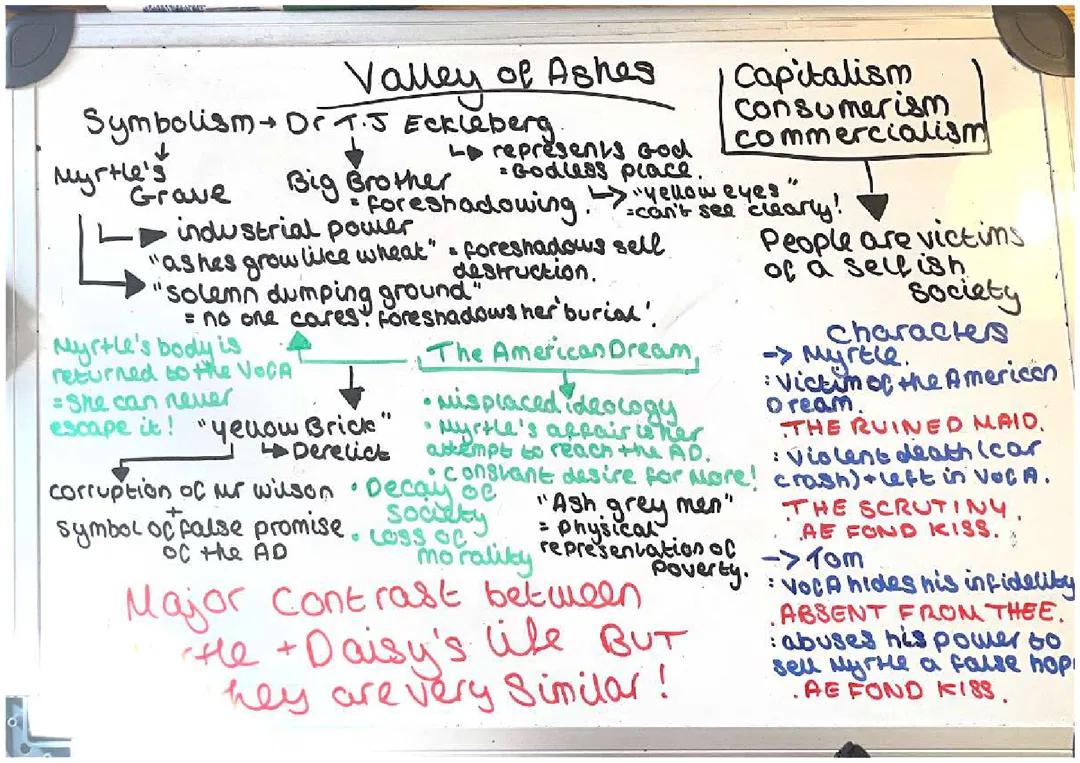 Valley of Ashes
Symbolism → Dr T.J Eckleberg
↳ represents God
= Godless place.
↳ "yellow eyes"
= can't see clearly!
Big Brother
= foreshadowing.
Myrtle's
Grave
industrial power
"ashes grow like wheat" = foreshadows self
destruction.
"solemn dumping ground"
= no one cares! foreshadows her 'burial'.
Capitalism
consumerism
commercialism
People are victims
of a selfish
society
Myrtle's body is
returned to the VOCA
= she can never
escape it!
The American Dream
• Misplaced ideology
• Myrtle's affair is her
attempt to reach the AD.
• constant desire for More!
• Decay of
society
• Loss of
morality
"yellow Brick"
↳ Derelict
corruption of Mr Wilson
+
symbol of false promise
of the AD
"Ash grey men"
= physical
representation of
poverty.
Characters
-> Myrtle.
: Victim of the American
Dream.
.THE RUINED MAID.
: Violent death (car
crash) + left in VOCA.
.THE SCRUTINY.
.AE FOND KISS.
-> Tom
: VOCA hides his infidelity
.ABSENT FROM THEE.
: abuses his power to
sell Myrtle a false hop
.AE FOND KISS.
Major Contrast between
rtle + Daisy's life BUT
hey are very Similar!